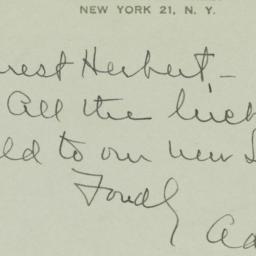 NEW YORK 21, N. Y.
rest Herbert, –
All the luck
ld to our new
Fondly